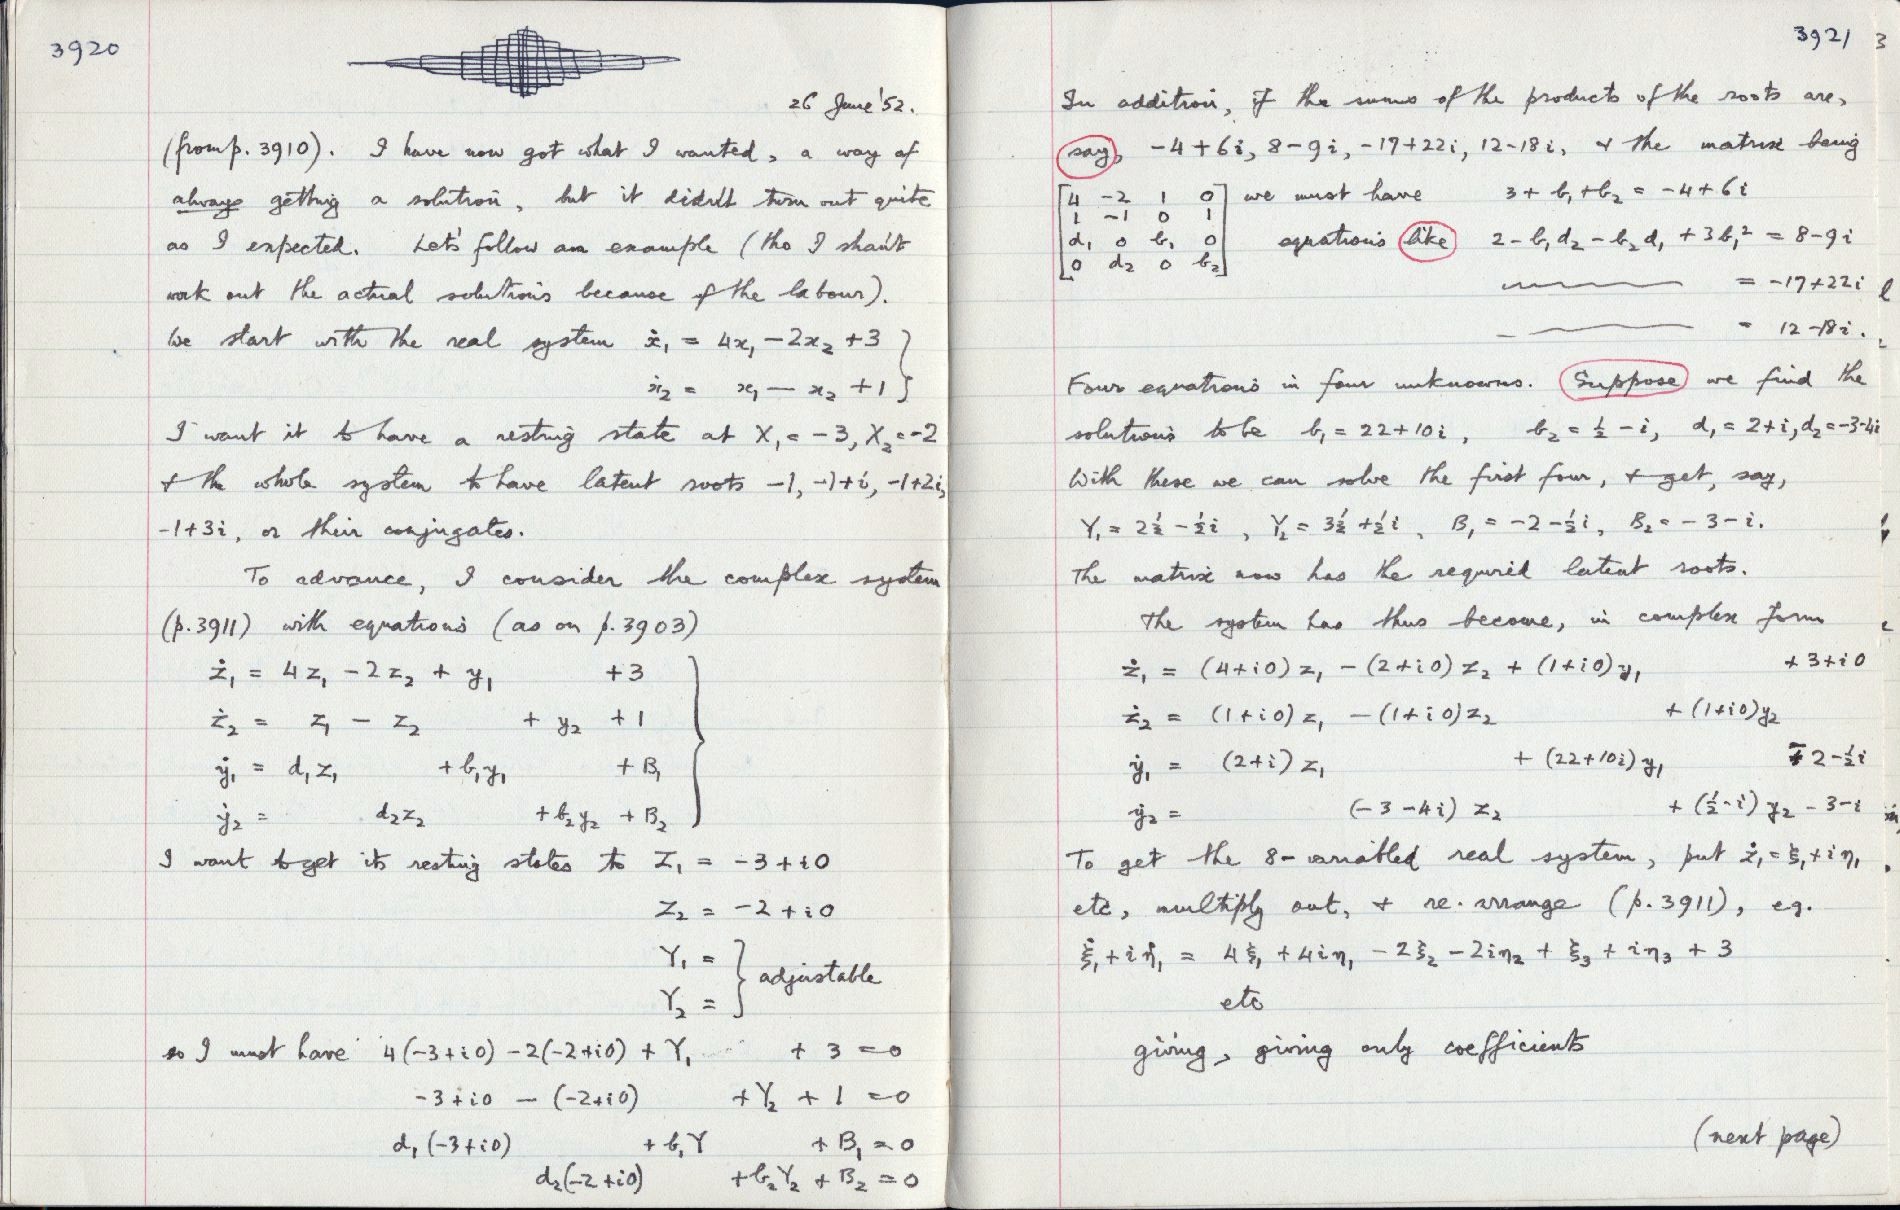 3920
26 June '52.
(from p. 3910). I have now got what I wanted, a way of
always getting a solution, but it didn't turn out quite
as I expected. Let's follow an example (tho I shan't
work out the actual solutions because of the labour).
We start with the real system ẋ₁ = 4x₁ - 2x₂ + 3
ẋ₂ = x₁ - x₂ + 1
I want it to have a resting state at X₁ = -3, X₂ = -2
& the whole system to have latent roots -1, -1+i, -1+2i,
-1+3i, or their conjugates.
To advance, I consider the complex system
(p.3911) with equations (as on p.3903)
ż₁ = 4z₁ - 2z₂ + y₁ + 3
ż₂ = z₁ - z₂ + y₂ + 1
ẏ₁ = d₁z₁ + b₁y₁ + B₁
ẏ₂ = d₂z₂ + b₂y₂ + B₂
I want to get its resting states to Z₁ = -3 + i0
Z₂ = -2 + i0
Y₁ =
Y₂ =
adjustable
so I must have 4(-3+i0) - 2(-2+i0) + Y₁ + 3 = 0
-3+i0 - (-2+i0) + Y₂ + 1 = 0
d₁(-3+i0) + b₁Y + B₁ = 0
d₂(-2+i0) + b₂Y₂ + B₂ = 0
3921
In addition, if the sums of the products of the roots are,
say, -4+6i, 8-9i, -17+22i, 12-18i, & the matrix being
[4 -2 1 0 we must have 3 + b₁ + b₂ = -4+6i
1 -1 0 1
d₁ 0 b₁ 0 equations like 2 - b₁d₂ - b₂d₁ + 3b₁² = 8-9i
0 d₂ 0 b₂]
= -17+22i
= 12-18i.
Four equations in four unknowns. Suppose we find the
solutions to be b₁ = 22+10i, b₂ = ½ - i, d₁ = 2+i, d₂ = -3-4i
With these we can solve the first four, & get, say,
Y₁ = 2½ - ½i, Y₂ = 3½ + ½i, B₁ = -2 - ½i, B₂ = -3 - i.
The matrix now has the required latent roots.
The system has thus become, in complex form
ż₁ = (4+i0)z₁ - (2+i0)z₂ + (1+i0)y₁ + 3+i0
ż₂ = (1+i0)z₁ - (1+i0)z₂ + (1+i0)y₂
ẏ₁ = (2+i)z₁ + (22+10i)y₁ - 2-½i
ẏ₂ = (-3-4i)z₂ + (½-i)y₂ - 3-i
To get the 8-variabled real system, put ż₁ = ξ₁ + iη₁
etc, multiply out, & re-arrange (p.3911), eg.
ξ̇₁ + iη̇₁ = 4ξ₁ + 4iη₁ - 2ξ₂ - 2iη₂ + ξ₃ + iη₃ + 3
etc
giving, giving only coefficients
(next page)